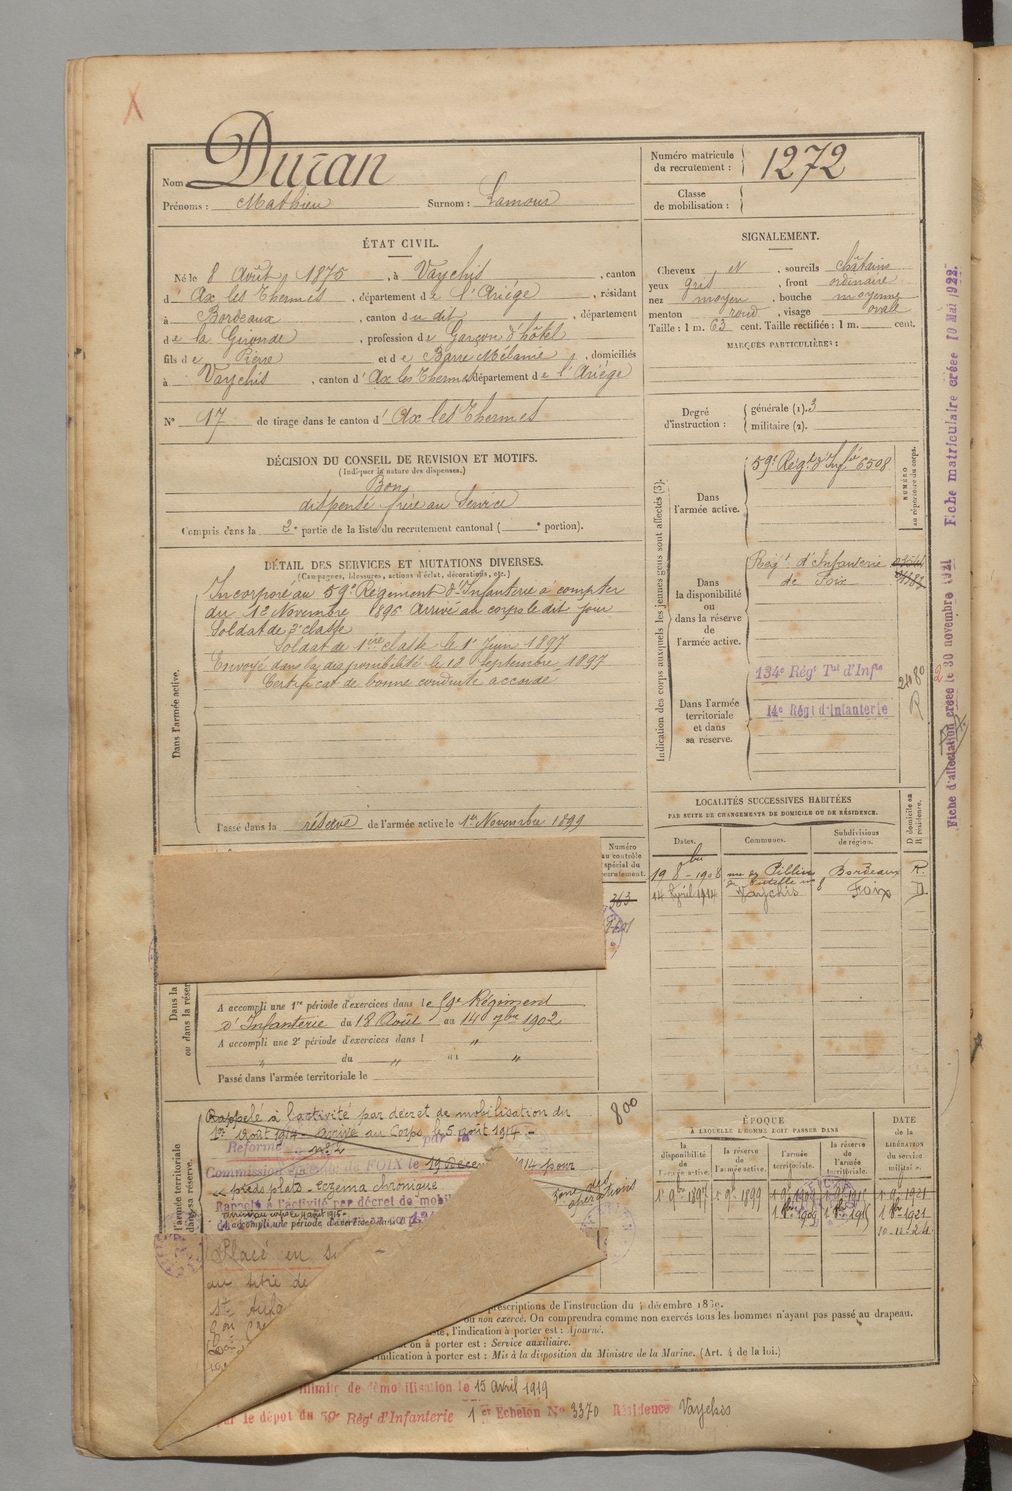 Nom Duran
Prénoms : Mathieu Surnom : Lamour
Numéro matricule du recrutement : 1272
Classe de mobilisation :
ÉTAT CIVIL.
Né le 8 Août 1875, à Vaychis, canton
d'Ax les Thermes, département de l'Ariége, résidant
à Bordeaux, canton du dit, département
de la Gironde, profession de Garçon d'hôtel
fils de Pierre et de Barre Mélanie, domiciliés
à Vaychis, canton d'Ax les Thermes, département de l'Ariége
N° 17 de tirage dans le canton d'Ax les Thermes
SIGNALEMENT.
Cheveux N, sourcils châtains
yeux gris, front ordinaire
nez moyen, bouche moyenne
menton rond, visage ovale
Taille : 1 m. 63 cent. Taille rectifiée : 1 m. cent.
MARQUES PARTICULIÈRES :
Degré d'instruction : générale (1). 3
militaire (2).
DÉCISION DU CONSEIL DE REVISION ET MOTIFS.
(Indiquer la nature des dispenses.)
Bon
dispensé frère au Service
Compris dans la 2e partie de la liste du recrutement cantonal ( e portion).
DÉTAIL DES SERVICES ET MUTATIONS DIVERSES.
(Campagnes, blessures, actions d'éclat, décorations, etc.)
Dans l'armée active.
Incorporé au 59e Régiment d'Infanterie à compter
du 16 Novembre 1896 Arrivé au corps le dit jour
Soldat de 2e classe
Soldat de 1ère classe le 1er Juin 1897
Envoyé dans la disponibilité le 18 Septembre 1897
Certificat de bonne conduite accordé
Passé dans la réserve de l'armée active le 1er Novembre 1899
Indication des corps auxquels les jeunes gens sont affectés (3).
Dans l'armée active.
59e Régt d'Infie 6508
NUMÉRO au répertoire du corps.
Dans la disponibilité ou dans la réserve de l'armée active.
Régt d'Infanterie
de Foix
Dans l'armée territoriale et dans sa réserve.
134e Régt Tal d'Infie
14e Régt d'Infanterie
LOCALITÉS SUCCESSIVES HABITÉES
PAR SUITE DE CHANGEMENTS DE DOMICILE OU DE RÉSIDENCE.
Dates. Communes. Subdivisions de région. D domicile ou R résidence.
19 8bre 1908 Bordeaux R.
14 Avril 1914 Vaychis Foix D.
Numéro au contrôle spécial du recrutement.
363
A accompli une 1re période d'exercices dans le 59e Régiment
d'Infanterie du 18 Août au 14 7bre 1902
A accompli une 2e période d'exercices dans l "
" du " au "
Passé dans l'armée territoriale le
l'armée territoriale dans sa réserve.
Rappelé à l'activité par décret de mobilisation du
1er Août 1914 - arrivé au Corps le 5 août 1914 -
Réformé n° 2 par la
Commission spéciale de FOIX le 19 Décem 1914 pour
" pieds plats - Eczéma chronique
Rappelé à l'activité par décret de mobi
A accompli une période d'exercices
zone des opérations
800
Placé en
au titre de
ÉPOQUE
À LAQUELLE L'HOMME DOIT PASSER DANS
la disponibilité de l'armée active. la réserve de l'armée active. l'armée territoriale. la réserve de l'armée territoriale.
DATE de la LIBÉRATION du service militaire.
1er 9bre 1897 1er 9bre 1899 1er 9bre 1909 1er 9bre 1915 1er 9bre 1921
10-11-24
prescriptions de l'instruction du 4 décembre 1889.
ou non exercé. On comprendra comme non exercés tous les hommes n'ayant pas passé au drapeau.
l'indication à porter est : Ajourné.
on à porter est : Service auxiliaire.
indication à porter est : Mis à la disposition du Ministre de la Marine. (Art. 4 de la loi.)
illimité de démobilisation le 15 Avril 1919
par le dépôt du 59e Régt d'Infanterie 1er Echelon N° 3370 Résidence Vaychis
Fiche d'affectation créée le 30 novembre 1921 Fiche matriculaire créée 10 Mai 1922.